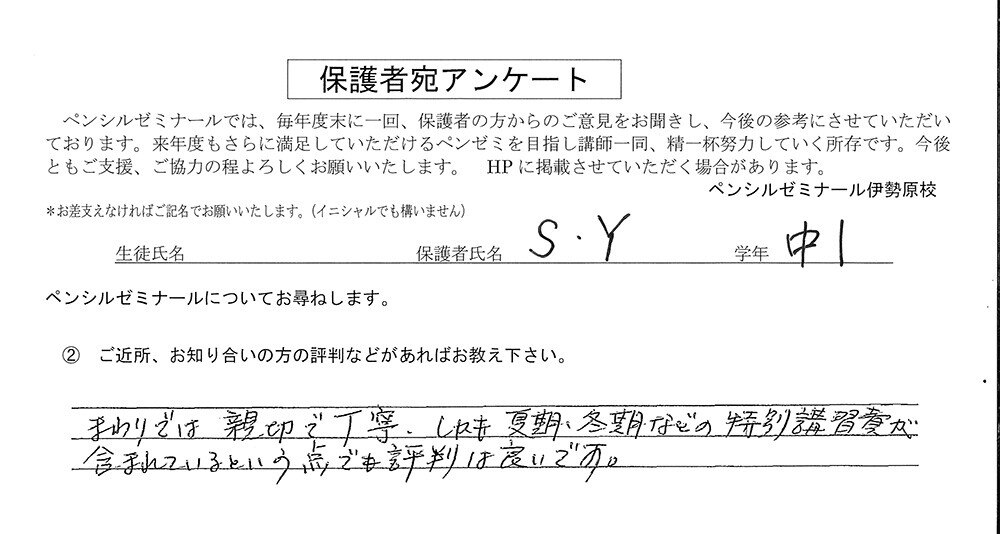 保護者宛アンケート
ペンシルゼミナールでは、毎年度末に一回、保護者の方からのご意見をお聞きし、今後の参考にさせていただい
ております。来年度もさらに満足していただけるペンゼミを目指し講師一同、精一杯努力していく所存です。今後
ともご支援、ご協力の程よろしくお願いいたします。 HPに掲載させていただく場合があります。
ペンシルゼミナール伊勢原校
*お差支えなければご記名でお願いいたします。(イニシャルでも構いません)
生徒氏名 保護者氏名 S.Y 学年 中1
ペンシルゼミナールについてお尋ねします。
② ご近所、お知り合いの方の評判などがあればお教え下さい。
まわりでは 親切で丁寧、しかも 夏期、冬期などの 特別講習費が
含まれているという点でも評判は良いです。